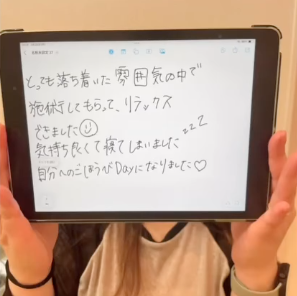 とっても落ち着いた雰囲気の中で
施術してもらって、リラックス
できました☺
気持ち良くて寝てしまいました zzz
自分へのごほうびDayになりました♡